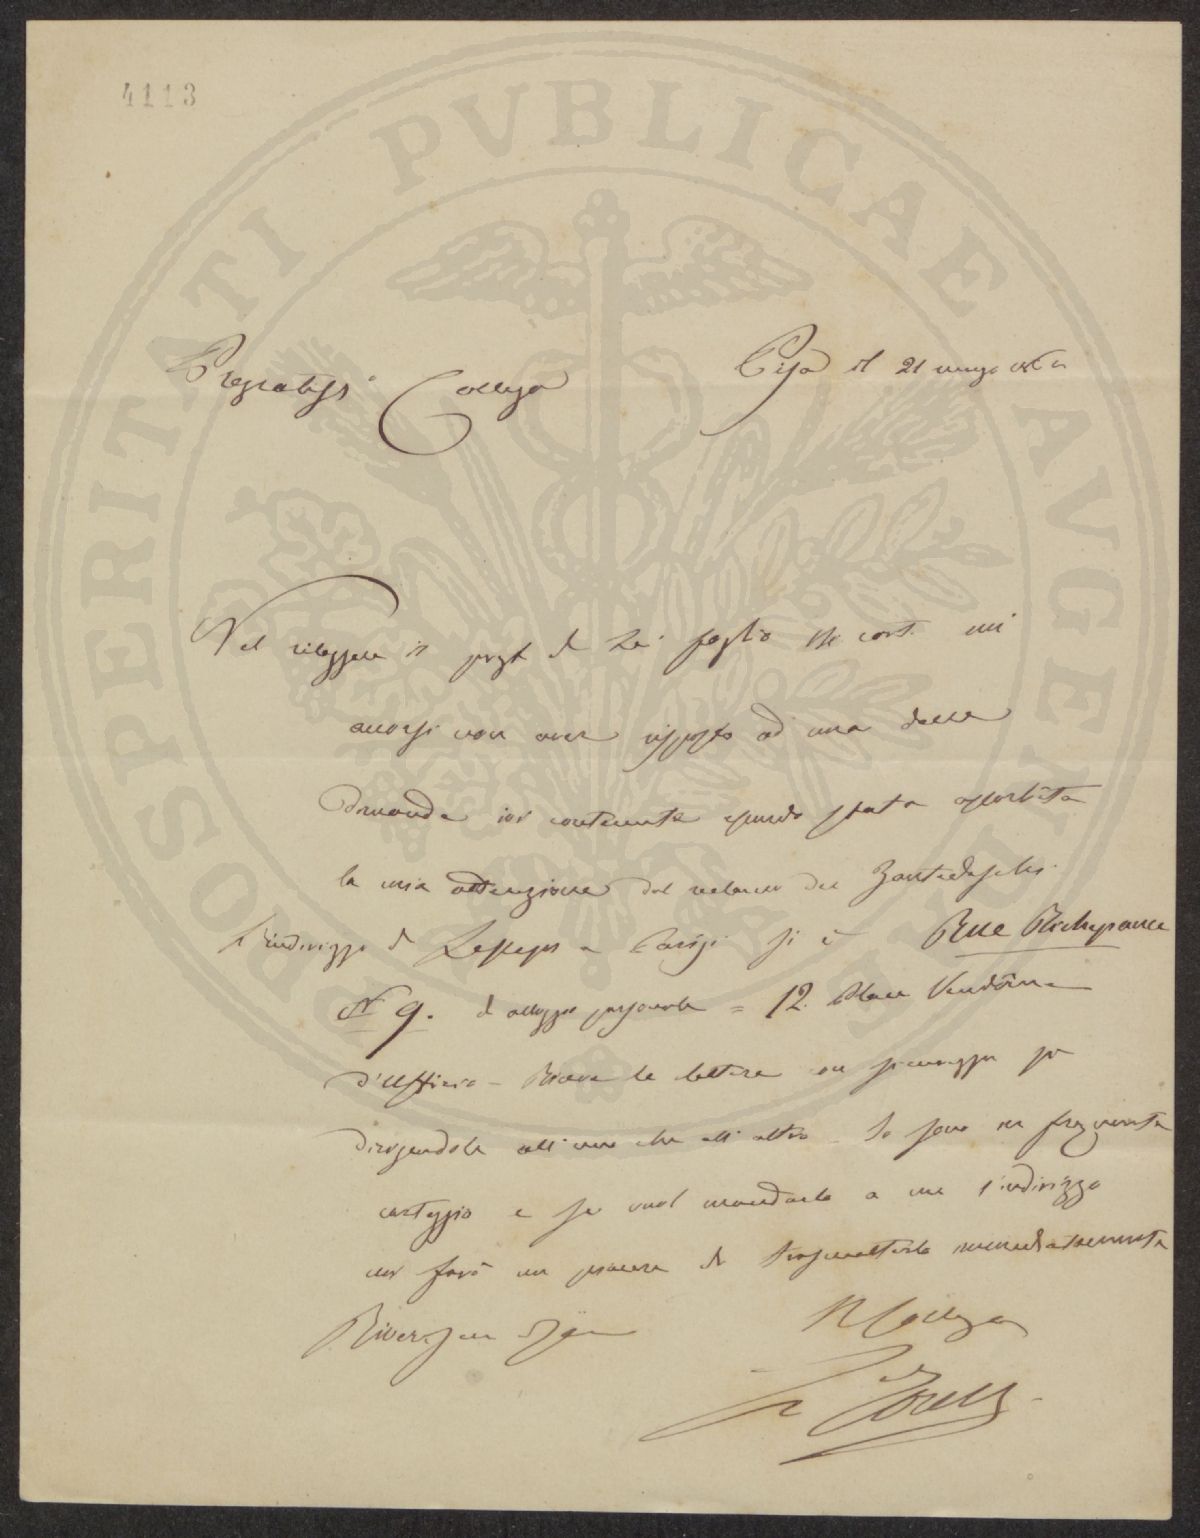 4113
PROSPERITATI PVBLICAE AVGENDAE
Pregiatissº Collega
Pisa il 21 862
Nel rileggere il di Lei foglio corrte mi
accorsi non aver risposto ad una delle
domande ivi contenute essendo stata assorbita
la mia attenzione dal del Zantedeschi
L'indirizzo di Lesseps a Parigi si è Rue Richepance
Nº 9. d'alloggio personale = 12. Place Vendôme
d'Uffizio - Riceve le lettere con sicurezza
dirigendole all'uno che all'altro Io sono in frequente
carteggio e se vuol mandarle a me l'indirizzo
mi farò un piacere di trasmetterle immediatamente
Collega
L. Torelli